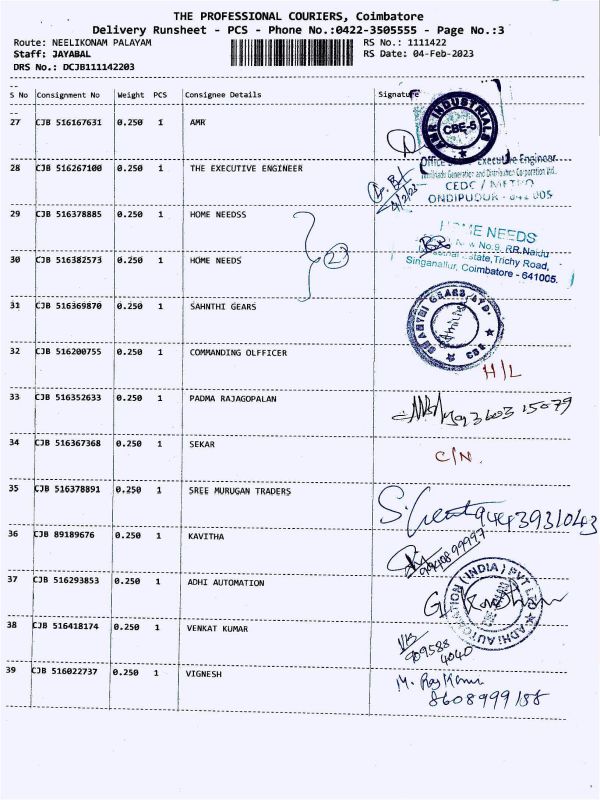 THE PROFESSIONAL COURIERS, Coimbatore
Delivery Runsheet - PCS - Phone No.:0422-3505555 - Page No.:3
Route: NEELIKONAM PALAYAM RS No.: 1111422
Staff: JAYABAL RS Date: 04-Feb-2023
DRS No.: DCJB111142203
S No Consignment No Weight PCS Consignee Details Signature
27 CJB 516167631 0.250 1 AMR
AMR INDUSTRIALS
CBE-5
28 CJB 516267100 0.250 1 THE EXECUTIVE ENGINEER
Executive Engineer
Generation and Distribution Corporation Ltd.,
CEDC / METRO
4/2/23
29 CJB 516378885 0.250 1 HOME NEEDSS
HOME NEEDS
New No.9, RR Naidu
Estate, Trichy Road,
Singanallur, Coimbatore - 641005.
30 CJB 516382573 0.250 1 HOME NEEDS
31 CJB 516369870 0.250 1 SAHNTHI GEARS
SHANTHI GEARS LTD.
CBE
32 CJB 516200755 0.250 1 COMMANDING OLFFICER
H/L
33 CJB 516352633 0.250 1 PADMA RAJAGOPALAN
34 CJB 516367368 0.250 1 SEKAR
C/N.
35 CJB 516378891 0.250 1 SREE MURUGAN TRADERS
9443931043
36 CJB 89189676 0.250 1 KAVITHA
37 CJB 516293853 0.250 1 ADHI AUTOMATION
ADHI AUTOMATION (INDIA) PVT LTD
38 CJB 516418174 0.250 1 VENKAT KUMAR
909588
4040
39 CJB 516022737 0.250 1 VIGNESH
8608999188